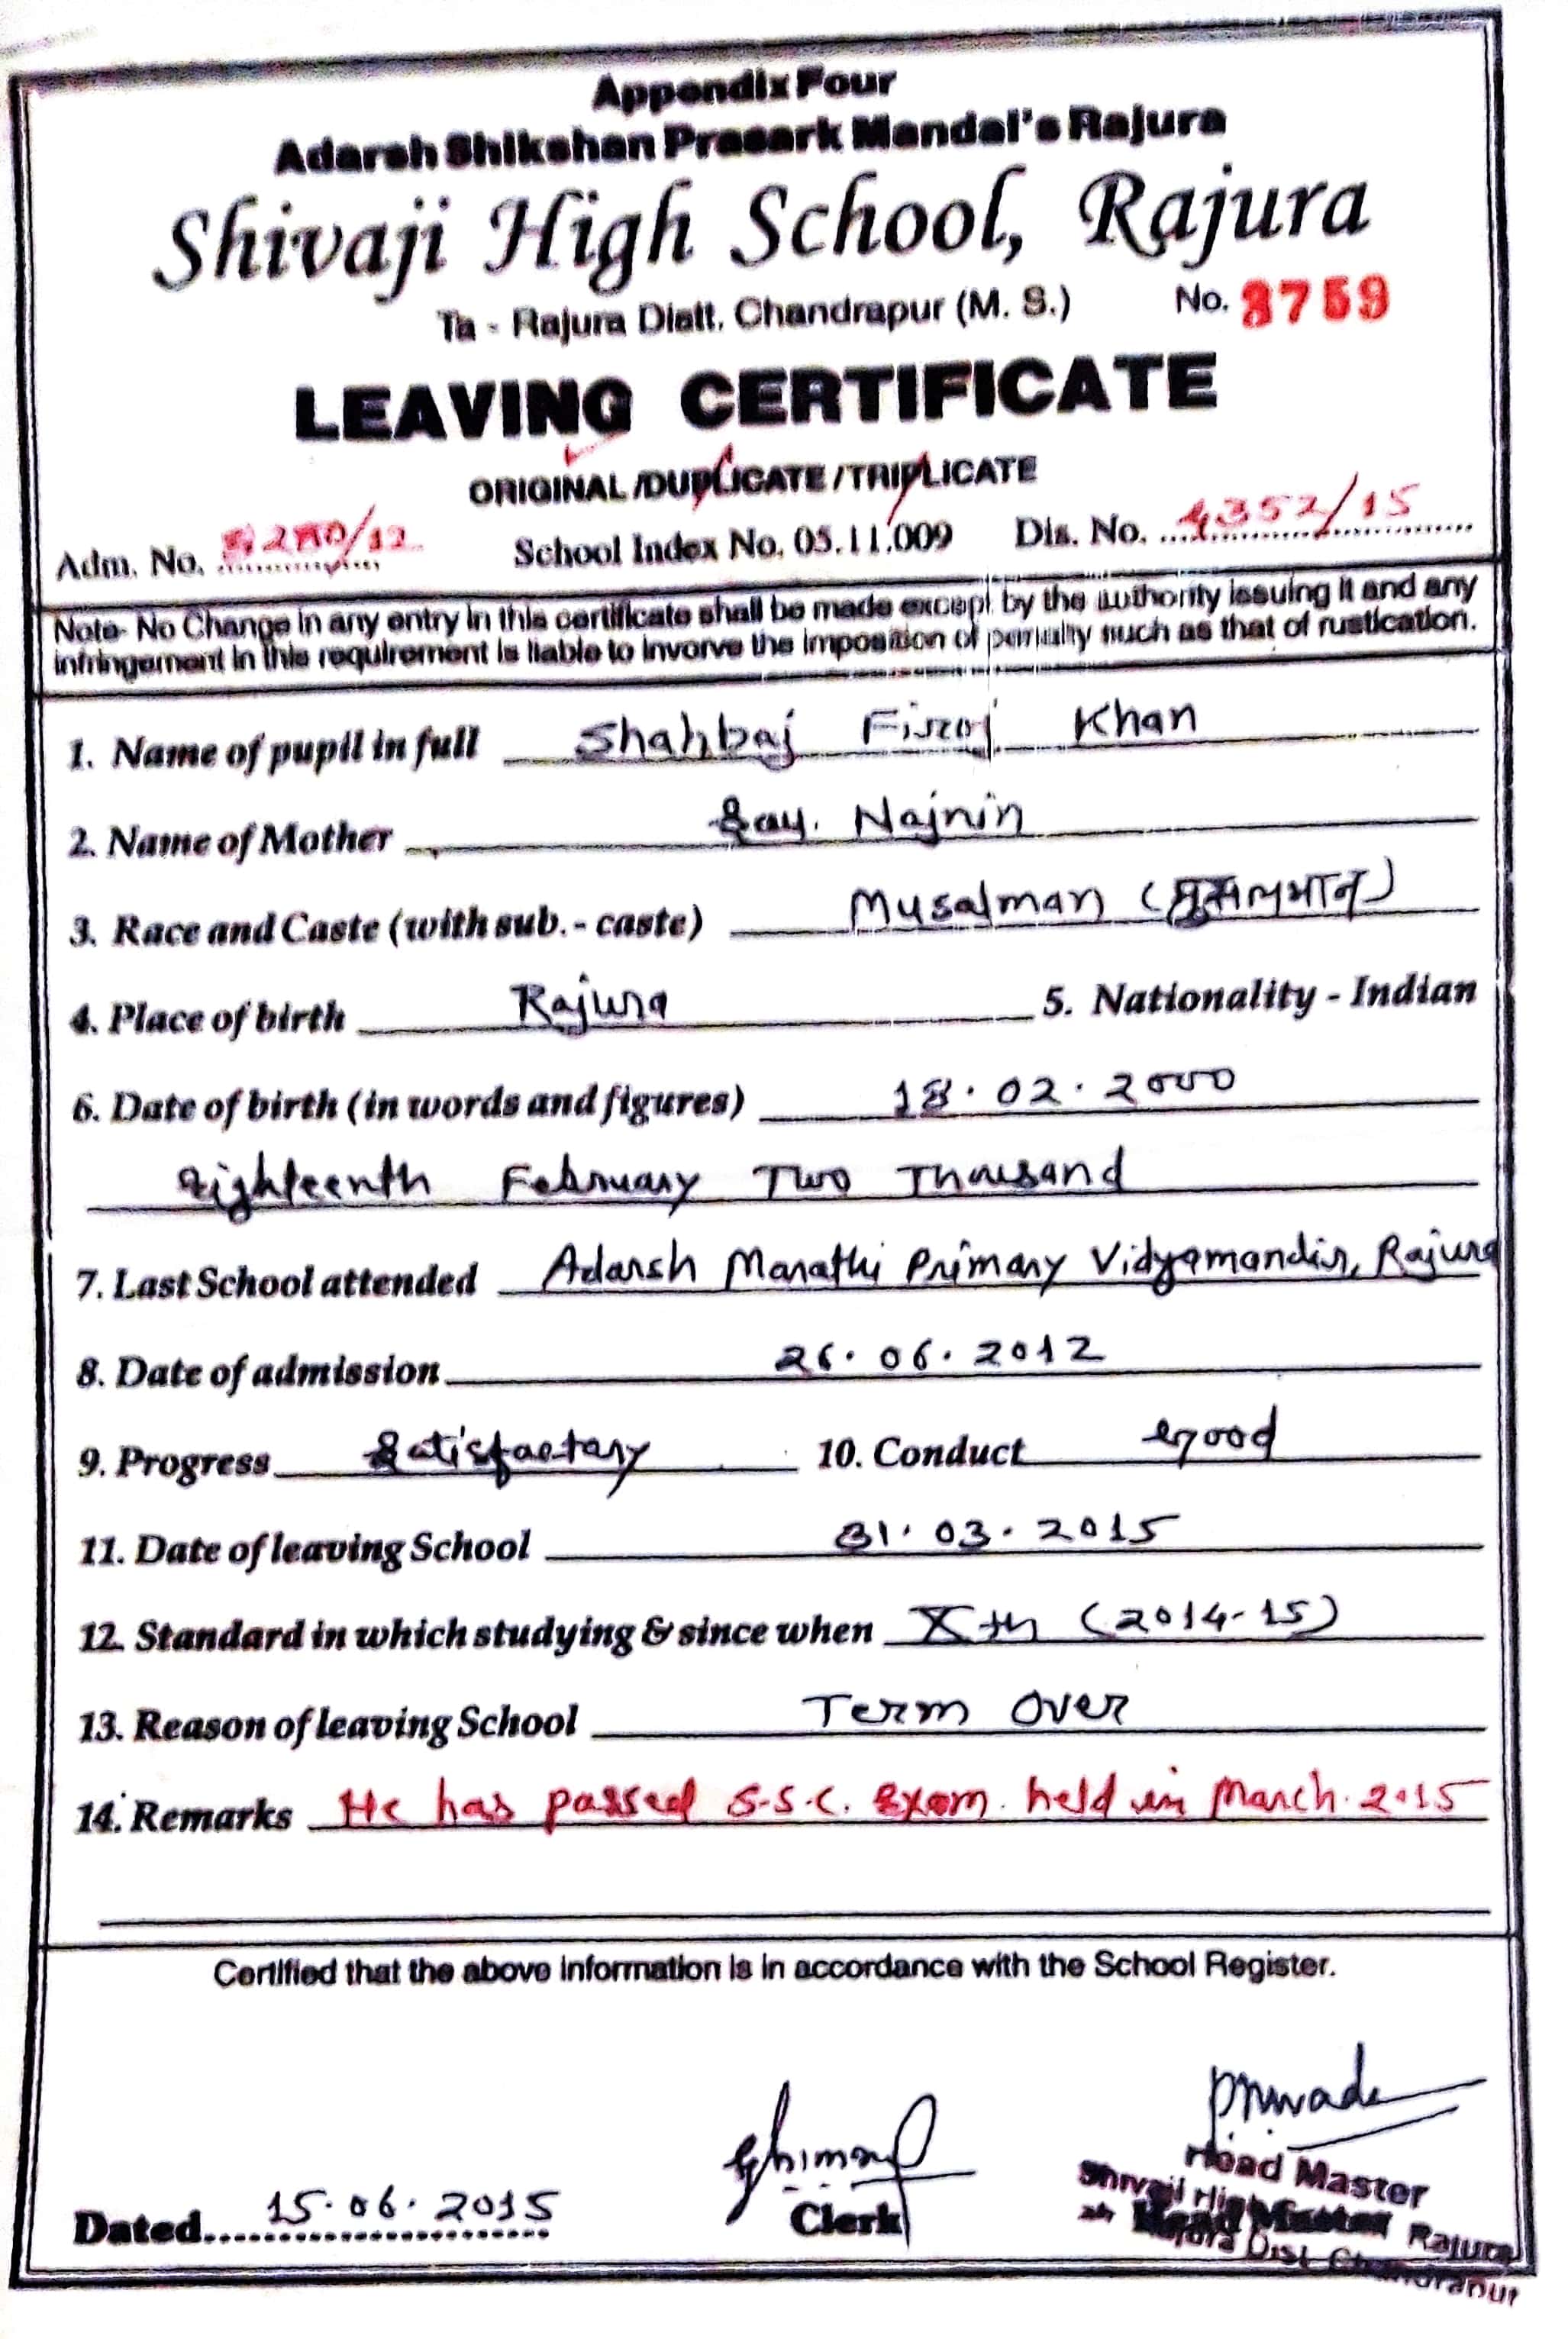 Appendix Four
Adarsh Shikshan Prasark Mandal's Rajura
Shivaji High School, Rajura
Ta - Rajura Distt. Chandrapur (M. S.) No. 3759
LEAVING CERTIFICATE
ORIGINAL /DUPLICATE /TRIPLICATE
Adm. No. School Index No. 05.11.009 Dis. No. 4352/15
Note- No Change in any entry in this certificate shall be made except by the authority issuing it and any
infringement in this requirement is liable to invorve the imposition of penality such as that of rustication.
1. Name of pupil in full Shahbaj Khan
2. Name of Mother Sau. Najnin
3. Race and Caste (with sub. - caste) Musalman (मुसलमान)
4. Place of birth Rajura 5. Nationality - Indian
6. Date of birth (in words and figures) 18.02.2000
Eighteenth February Two Thousand
7. Last School attended Adarsh Marathi Primary Vidyamandir, Rajura
8. Date of admission 26.06.2012
9. Progress Satisfactary 10. Conduct Good
11. Date of leaving School 31.03.2015
12. Standard in which studying & since when Xth (2014-15)
13. Reason of leaving School Term Over
14. Remarks He has passed S.S.C. Exam. held in March. 2015
Certified that the above information is in accordance with the School Register.
Dated 15.06.2015
Clerk
Head Master
Shivaji High Rajura
Dist Chandrapur